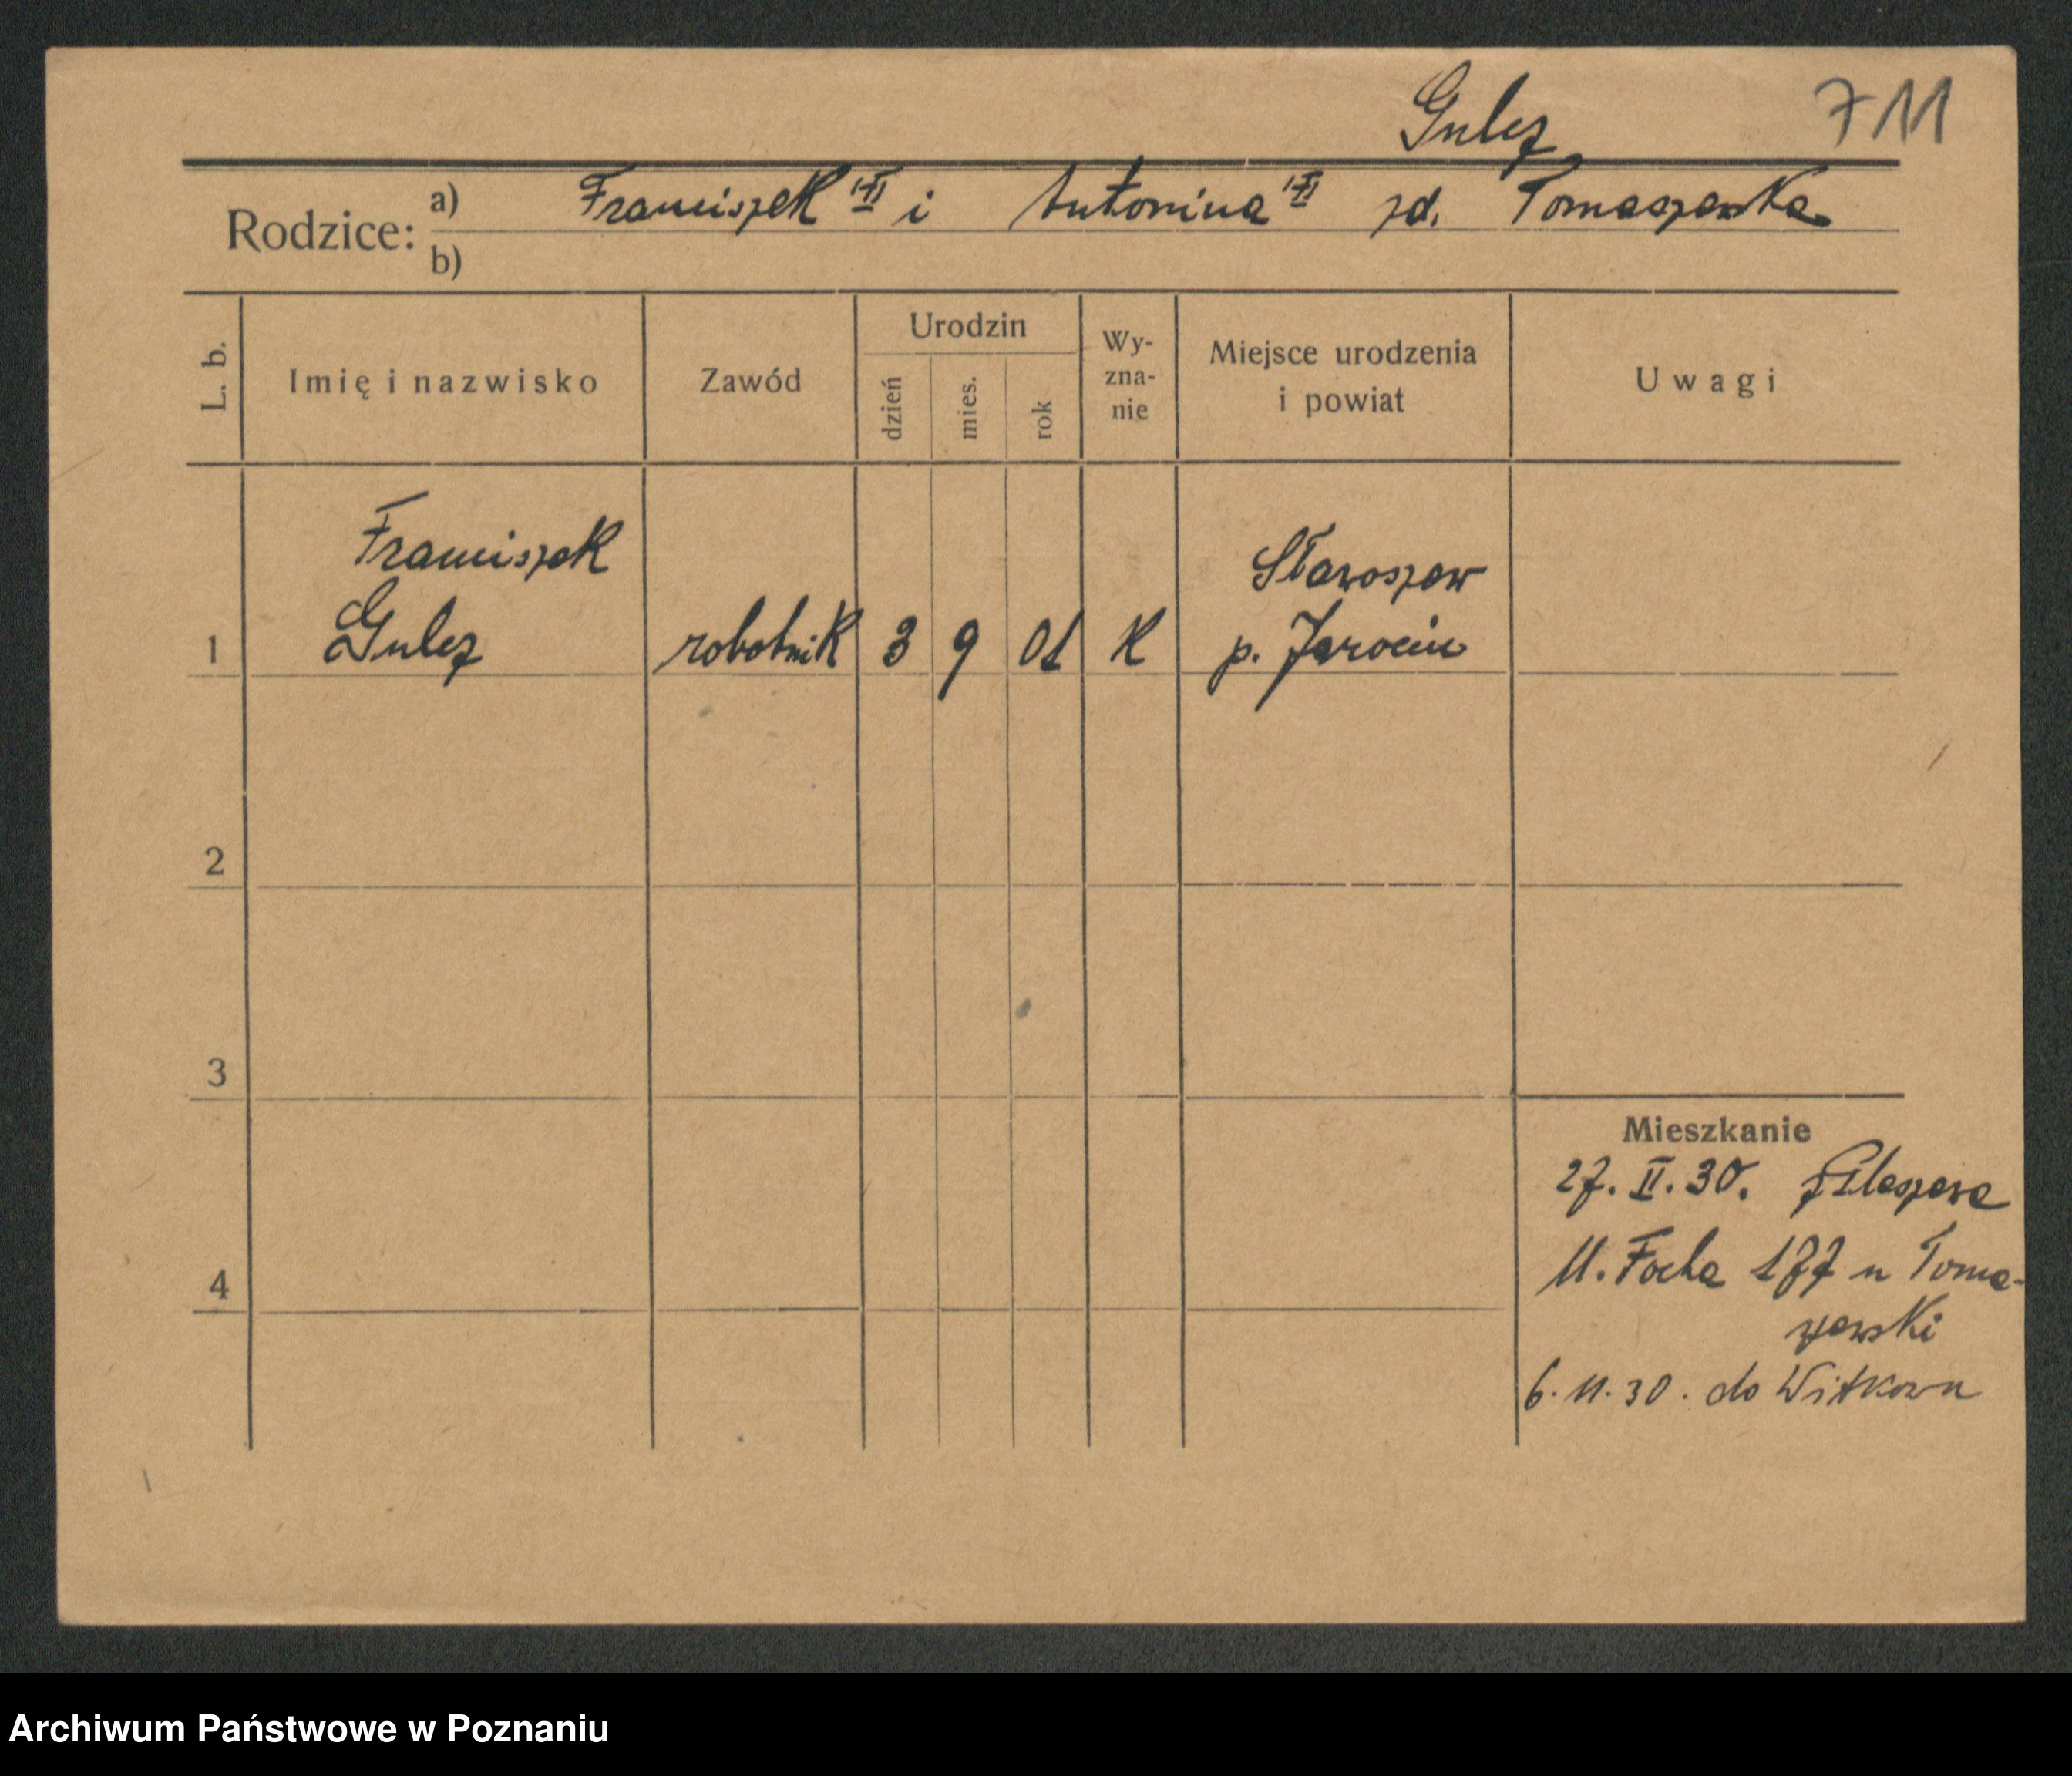 Gulcz
711
Rodzice: a) Franciszek i Antonina zd. Tomaszewska
b)
L. b. Imię i nazwisko Zawód Urodzin dzień mies. rok Wy-zna-nie Miejsce urodzenia i powiat Uwagi
Franciszek Staroszew
1 Gulcz robotnik 3 9 01 K p. Jarocin
2
3
Mieszkanie
27. II. 30.
M. Focha 177 u Toma-
4
szewski
6. 11. 30. do Witkowa
Archiwum Państwowe w Poznaniu